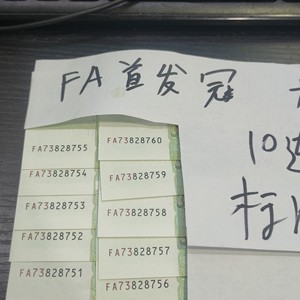 FA首发冠
10连
标
FA73828755
FA73828760
FA73828754
FA73828759
FA73828753
FA73828758
FA73828752
FA73828757
FA73828751
FA73828756